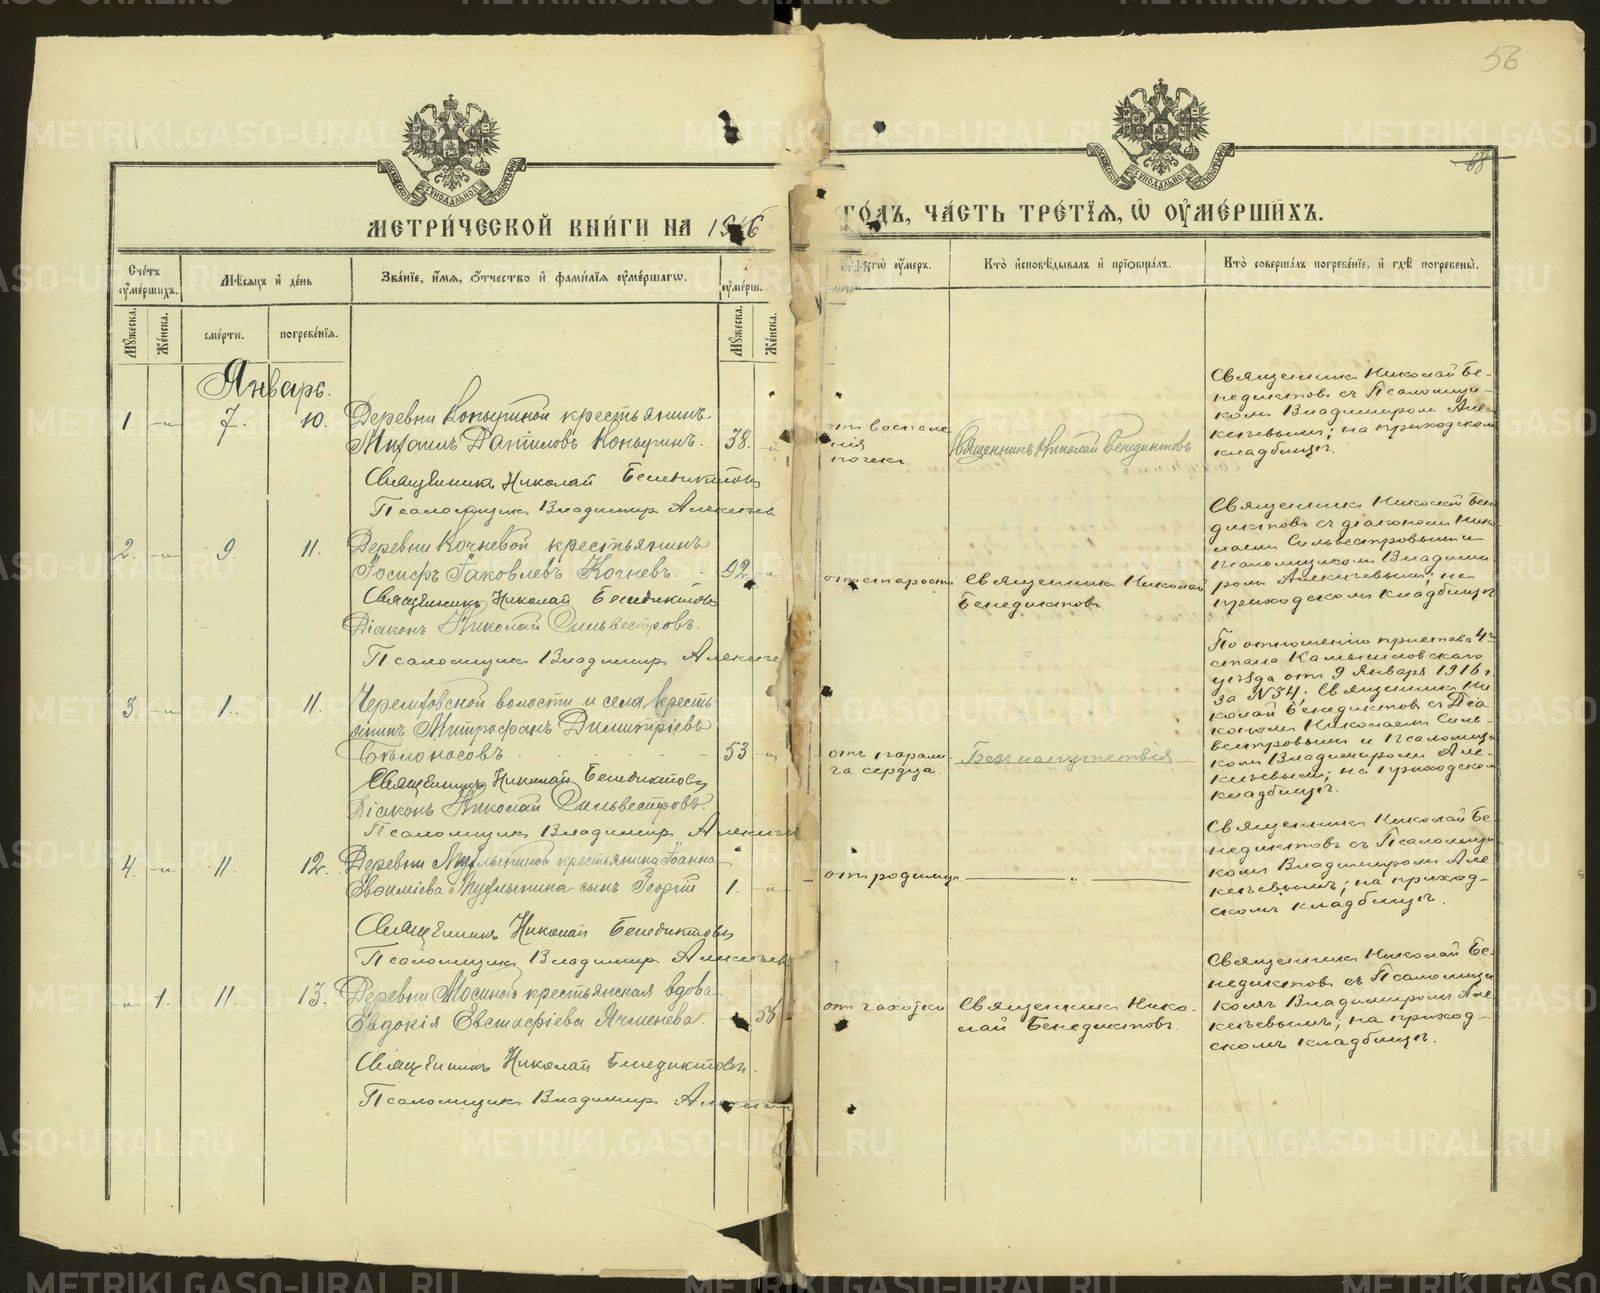 56
68
МЕТРИ́ЧЕСКОЙ КНИ́ГИ НА 1916
ГО́ДЪ, ЧА́СТЬ ТРЕ́ТІѦ, Ѡ ОУМЕ́РШИХЪ.
Счетъ оумершихъ.
Мѣсяцъ и день
Званіе, имя, отчество и фамилія оумершагѡ.
оумерш.
Кто исповѣдывалъ и пріобщалъ.
Кто совершалъ погребеніе, и гдѣ погребены.
Мужеска.
Женска.
смерти.
погребенія.
Мужеска.
Женска.
Январь.
1 -"- 7. 10. Деревни Копыриной крестьянинъ
Михаилъ Даниловъ Копыринъ. 38.
Священникъ Николай Бенедиктовъ
Псаломщикъ Владимиръ Алексѣев
от воспале
нія
почек.
Священникъ Николай Бенедиктовъ.
Священник Николай Бе-
недиктовъ съ Псаломщи-
ком Владимиром Але-
ксѣевым; на приходском
кладбищѣ.
2. -"- 9. 11. Деревни Кочневой крестьянинъ
Іосифъ Іаковлевъ Кочневъ. 92
Священникъ Николай Бенедиктовъ
Діаконъ Николай Сильвестровъ.
Псаломщик Владимир Алексѣе
от старости
Священник Николай
Бенедиктовъ
Священник Николай Бене
диктовъ съ діаконом Нико
лаем Сильвестровым и
псаломщиком Владими
ром Алексѣевым; на
приходском кладбищѣ
3. -"- 1. 11. Черемховской волости и села, кресть
янинъ Митрофанъ Димитріевъ
Бѣлоносовъ 53
Священникъ Николай Бенедиктовъ
Діаконъ Николай Сильвестровъ.
Псаломщик Владимир Алексѣев
отъ парали
ча сердца.
Без напутствія
По отношенію пристава 4
стана Камышловскаго
уѣзда от 9 Января 1916 г.
за № 54; Священник Ни
колай Бенедиктов съ Діа
коном Николаем Силь-
вестровым и Псаломщи
ком Владимиром Але-
ксѣевым; на приходском
кладбищѣ.
4. -"- 11. 12. Деревни крестьянина Іоанна
Евѳиміева сынъ Георгій 1.
Священникъ Николай Бенедиктовъ
Псаломщик Владимир Алексѣев
от родимца
Священник Николай Бе-
недиктовъ съ Псаломщи
ком Владимиром Але
ксѣевымъ; на приход-
скомъ кладбищѣ.
-"- 1. 11. 13. Деревни Мосиной крестьянская вдова
Евдокія Евстафіева Ячменева. 56
Священникъ Николай Бенедиктовъ.
Псаломщик Владимир
от чахотки
Священник Нико-
лай Бенедиктовъ.
Священник Николай Бе-
недиктов съ Псаломщи
комъ Владимиромъ Але
ксѣевымъ; на приход-
скомъ кладбищѣ.
METRIKI.GASO-URAL.RU